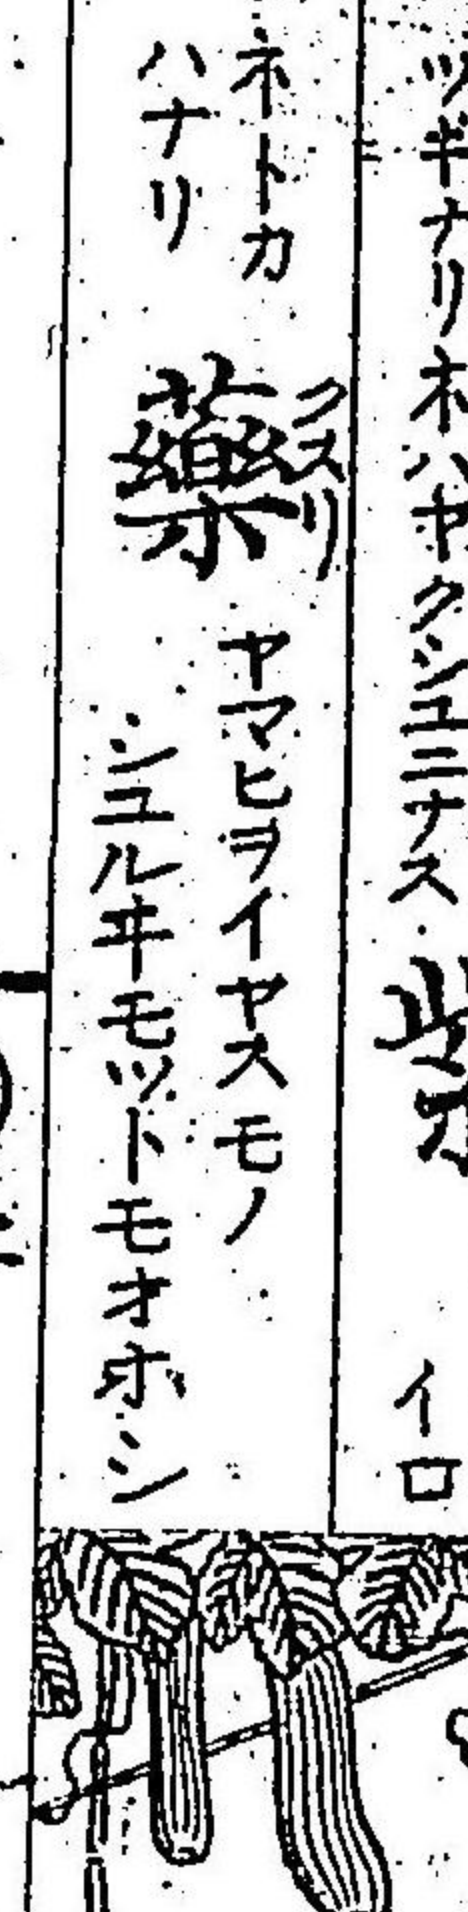 ツギナリネハヤクシユニナス
イロ
ネトカ
ハナリ
藥
クスリ
ヤマヒヲイヤスモノ
シユルヰモツトモオホシ